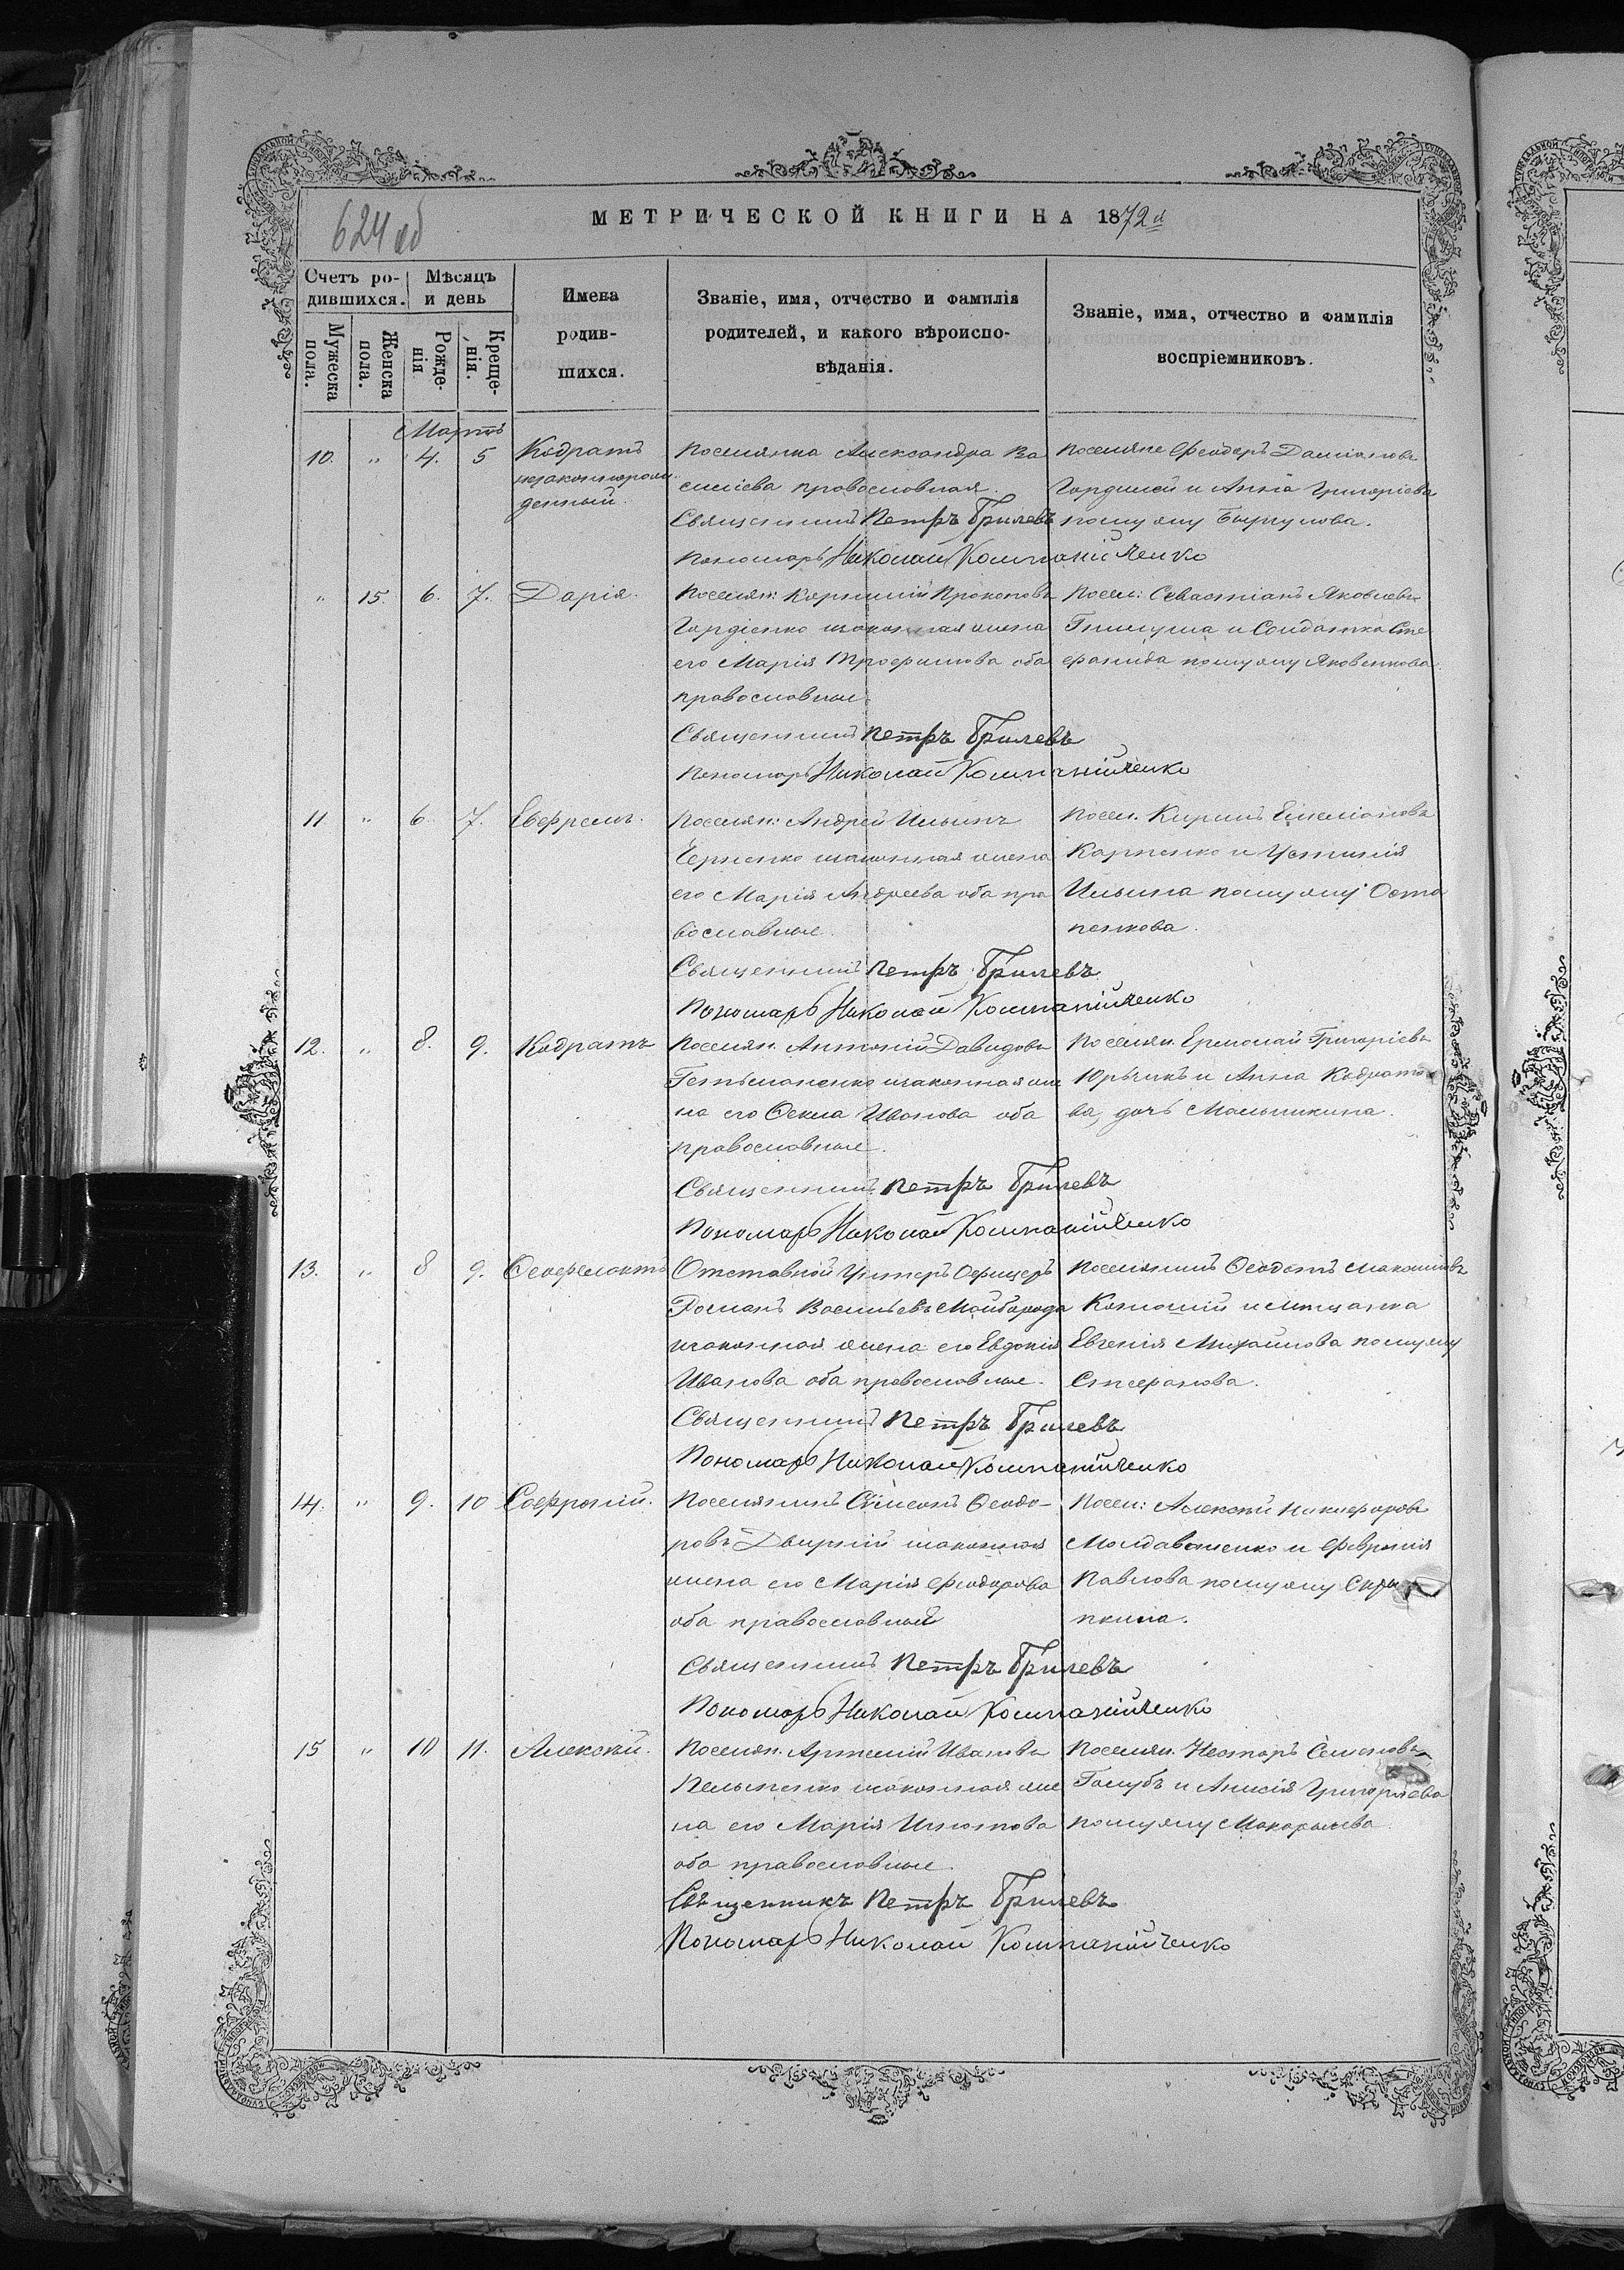 624 об
МЕТРИЧЕСКОЙ КНИГИ НА 1872й
Счетъ ро-
дившихся.
Мѣсяцъ
и день
Мужеска
пола.
Женска
пола.
Рожде-
нія
Креще-
нія.
Имена
родив-
шихся.
Званіе, имя, отчество и фамилія
родителей, и какого вѣроиспо-
вѣданія.
Званіе, имя, отчество и фамилія
воспріемниковъ.
Мартъ
10. " 4. 5 Кодратъ
незаконнорож
денный.
Поселянка Александра Ва
силіева православная.
Священникъ Петръ Брилевъ
Пономарь Николай Компанійченко
Поселяне Феодоръ Даміановъ
и Анна Григоріева
по мужу
" 15. 6. 7. Дарія.
Поселян: Прокоповъ
Гордіенко и законная жена
его Марія Трофимова оба
православные.
Священникъ Петръ Брилевъ
Пономарь Николай Компанійченко
Посел: Севастіанъ Яковлевъ
и Солдатка Сте
фанида по мужу Яковенкова
11 " 6. 7. Евфремъ.
Поселян: Андрей Ильинъ
Черненко и законная жена
его Марія Андреева оба пра
вославные.
Священникъ Петръ Брилевъ
Пономарь Николай Компанійченко
Посел. Кирилъ Емеліановъ
Карпенко и Устинія
Ильина по мужу Оста
пенкова.
12. " 8. 9. Кодратъ
Поселян. Антоній Давидовъ
Гетьманенко и законная же
на его Ѳекла Иванова оба
православные.
Священникъ Петръ Брилевъ
Пономарь Николай Компанійченко
Поселян. Ермолай Григоріевъ
Юрьчикъ и Анна Кодрато
ва, дочь Мальникина.
13. " 8 9. Ѳеофелактъ
Отставной Унтеръ Офицеръ
Романъ Васильевъ Майборода
и законная жена его Евдокія
Иванова оба православные.
Священникъ Петръ Брилевъ
Пономарь Николай Компанійченко
Поселянинъ Ѳеодотъ
и мещанка
Евгенія Михайлова по мужу
Стефанова.
14. " 9. 10 Софроній.
Поселянинъ Сѵмеонъ Ѳеодо-
ровъ и законная
жена его Марія Феодорова
оба православные
Священникъ Петръ Брилевъ
Пономарь Николай Компанійченко
Посел: Алексѣй Никифоровъ
Молдаваненко и Февронія
Павлова по мужу
пкина.
15 " 10 11. Алексѣй.
Поселян. Артемій Ивановъ
и законная же
на его Марія Игнатова
оба православные.
Священникъ Петръ Брилевъ
Пономарь Николай Компанійченко
Поселян. Несторъ Семеновъ
Голубъ и Анисія Григоріева
по мужу